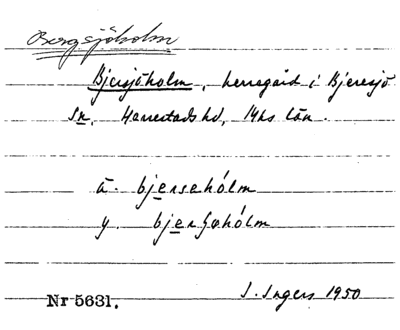 Bergsjöholm
Bjersjöholm, herregård i Bjeresjö
sn, Herrestads hd, Mhs län.
ä. bjersehólm
y. bjerʃøhólm
Nr 5631. I. Ingers 1950